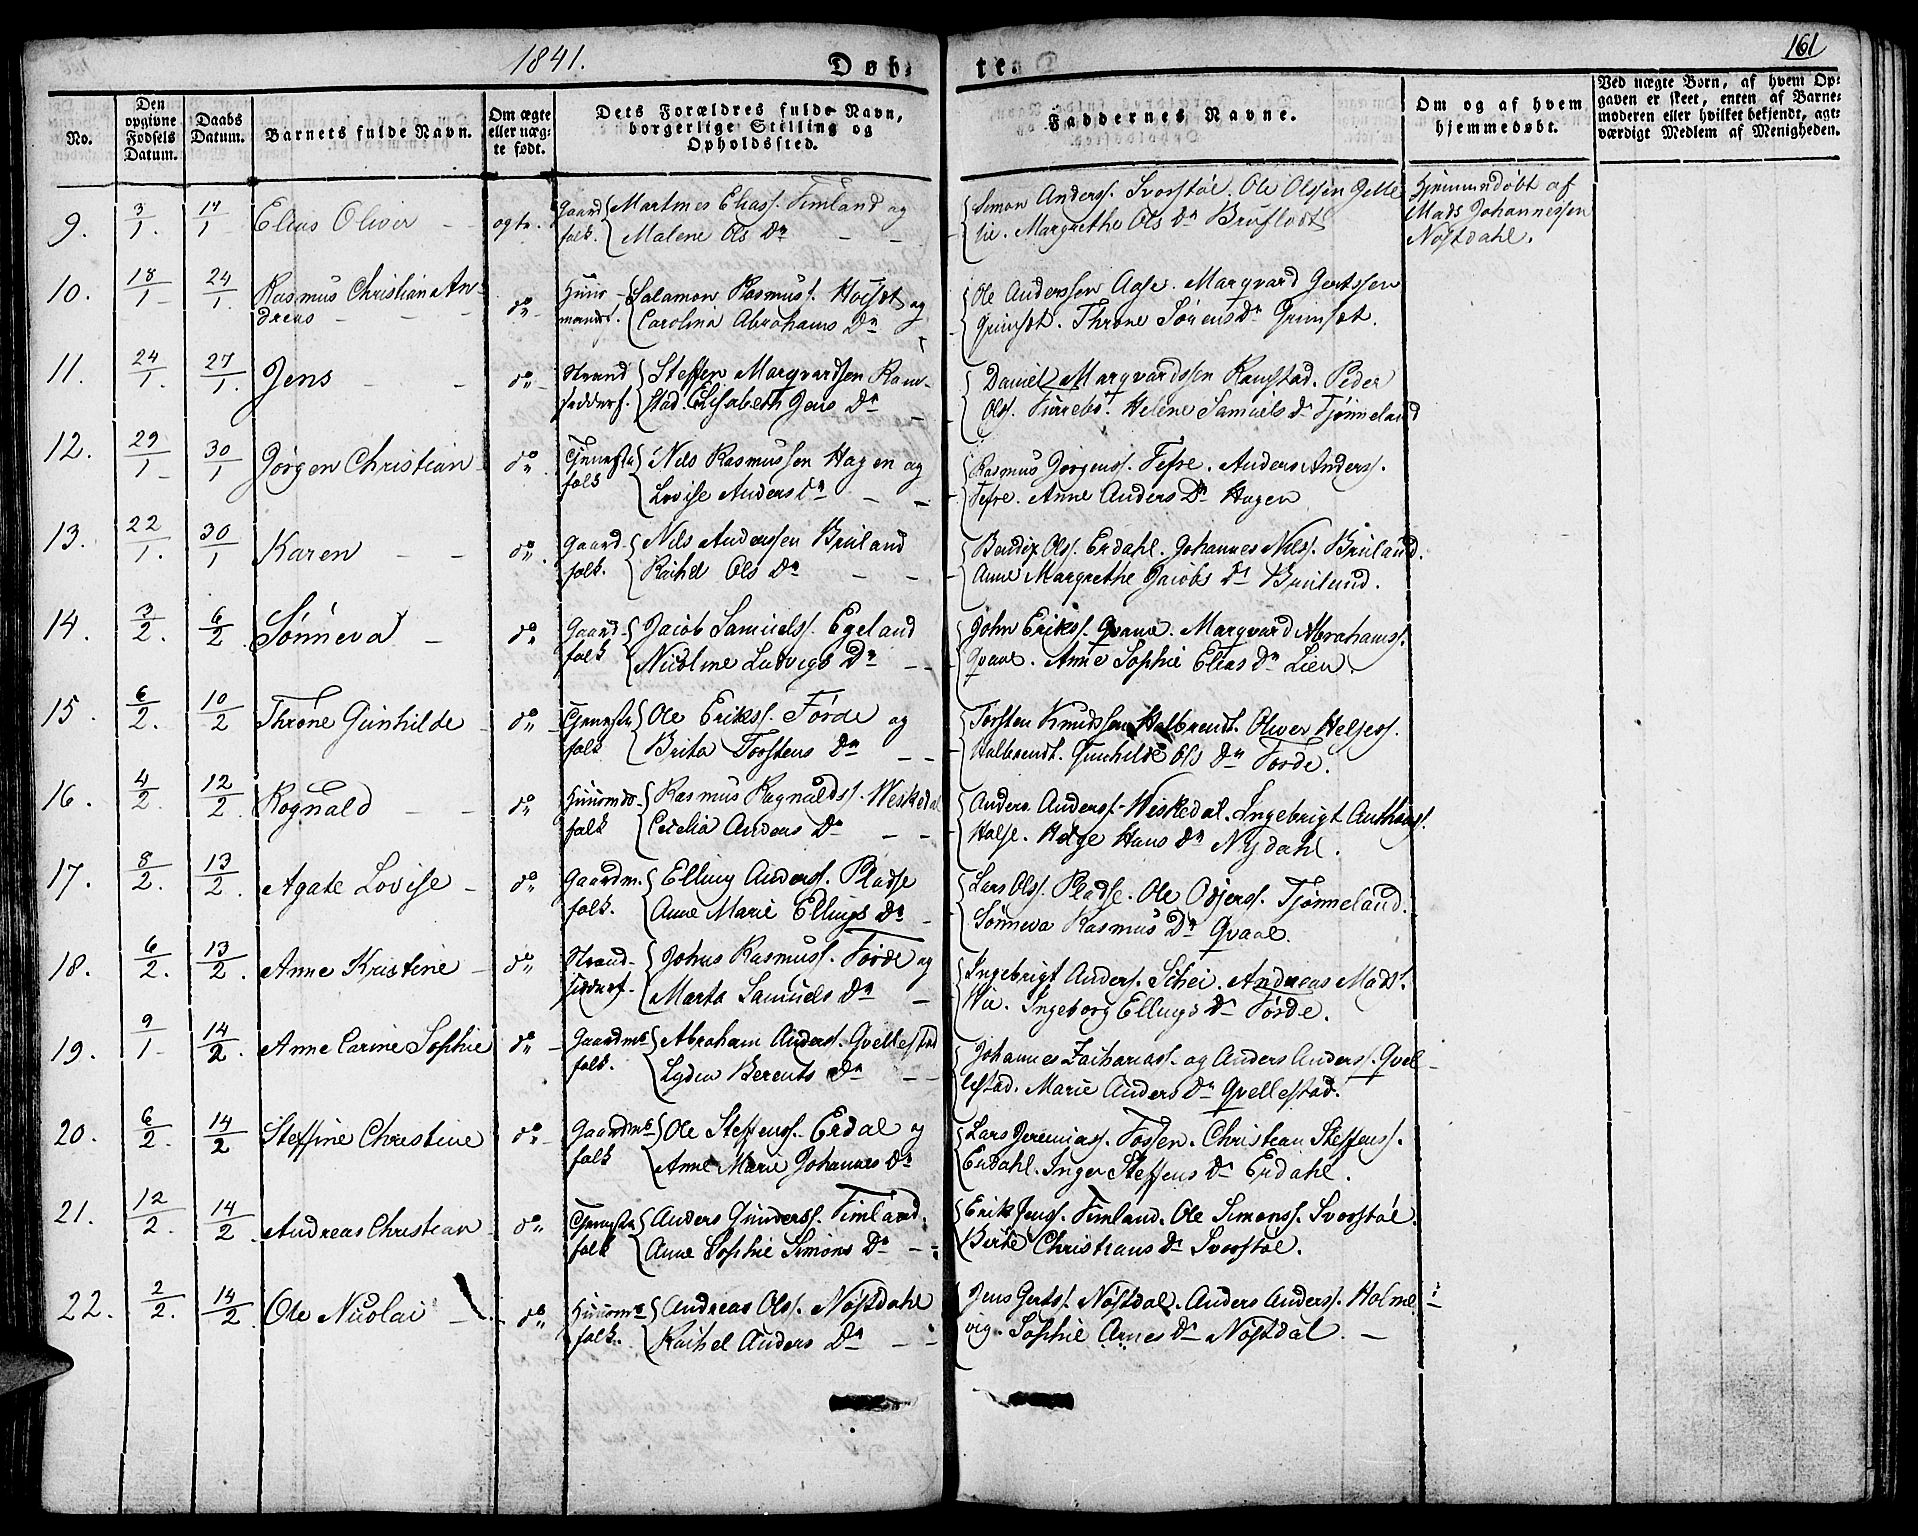 1841.
Døb-
te
161
No.
Den opgivne Fødsels Datum.
Daabs Datum.
Barnets fulde Navn.
Om ægte eller uæg- te født.
Dets Forældres fulde Navn, borgerlige Stilling og Opholdssted.
Faddernes Navne.
Om og af hvem hjemmedøbt.
Ved uægte Børn, af hvem Op-
gaven er skeet, enten af Barne-
moderen eller hvilket bekjendt, agt-
værdigt Medlem af Menigheden.
9. 3/1. 17/1 Elias Oliver - - ægte. Gaard folk. Martines Eliass. Timland og
Malene Ols Dr - -
Simon Anderss. Svorstøl. Ole Olssen Jelle
vie. Margrethe Ols Dr Bruflodt
Hjemmedøbt af
Mads Johannessen
Nøstdahl.
10. 18/1 24/1. Rasmus Christian An-
dreas - - - do Huus- mandsf. Salamon Rasmuss. Hofset og
Carolina Abrahams Dr
Ole Anderssen Aase. Marqvard Gertssen
Grimset. Throne Sørens Dr Grimset.
11. 24/1. 27/1. Jens - - do Strand sidderf. Steffen Marqvardssen Ram-
stad. Elisabeth Jens Dr -
Daniel Marqvardssen Ramstad. Peder
Olss. Furrebø. Helene Samuels Dr Tjønneland
12. 29/1 30/1 Jørgen Christian - do Tjeneste folk Nils Rasmussen Hagen og
Lovise Anders Dr - -
Rasmus Jørgenss. Tefre. Anders Anderss.
Tefre. Anne Anders Dr Hagen
13. 22/1. 30/1 Karen - - do Gaard- folk. Nils Anderssen Bruland
Rachel Ols Dr - -
Bendix Olss. Erdahl. Johannes Nilss. Bruland.
Anne Margrethe Jacobs Dr Bruland.
14. 3/2. 6/2 Sønneva - do Gaard- folk Jacob Samuelss. Egeland
Nicoline Ludvigs Dr - -
John Erikss. Qvaae. Marqvard Abrahamss.
Qvaae. Anne Sophie Elias Dr Lien.
15. 6/2. 10/2 Throne Gunhilde - do Tjeneste folk Ole Erikss. Førde og
Brita Torstens Dr - -
Torsten Knudssen Halbrendt. Oliver Heljess.
Halbrendt. Gunhilde Ols Dr Førde.
16. 4/2. 12/2. Rognald - - do Huusmds- folk Rasmus Ragnaldss. Weskedal
Cecelia Anders Dr - -
Anders Anderss. Weskedal. Ingebrigt Anthonss.
Halse. Helge Hans Dr Nydahl.
17. 8/2. 13/2. Agate Lovise - do Gaardm. folk. Elling Anderss. Pladse
Anne Marie Ellings Dr -
Lars Olss. Pladse. Ole Odjerss. Tjønneland.
Sønneva Rasmus Dr Qvaae.
18. 6/2. 13/2. Anne Kristine - do Strand- sidderf. Johns Rasmuss. Førde og
Marta Samuels Dr -
Ingebrigt Anderss. Schei. Andreas Mads.
Vie. Ingeborg Ellings Dr Førde.
19. 9/1 14/2. Anne Carine Sophie do - Gaardms folk. Abraham Anderss. Qvellestad
Lydia Berents Dr - -
Johannes Zacharias. og Anders Anderss. Qvel-
lestad. Marie Anders Dr Qvellestad.
20. 6/2. 14/2 Steffine Christine do - Gaardms folk Ole Steffenss. Erdal og
Anne Marie Johannes Dr
Lars Jeremiass. Fossen. Christian Steffenss.
Erdahl. Inger Steffens Dr Erdahl.
21. 12/2. 14/2. Andreas Christian - do Tjeneste folk Anders Gunderss. Timland.
Anne Sophie Simons Dr -
Erik Jenss. Timland. Ole Simonss. Svorstøl.
Berte Christians Dr Svorstøl.
22. 2/2. 14/2. Ole Nicolai - do Huusms folk. Andreas Olss. Nøstdahl
Rachel Anders Dr - -
Jens Gertss. Nøstdal. Anders Anderss. Holme-
vig. Sophie Arnes Dr Nøstdal. -